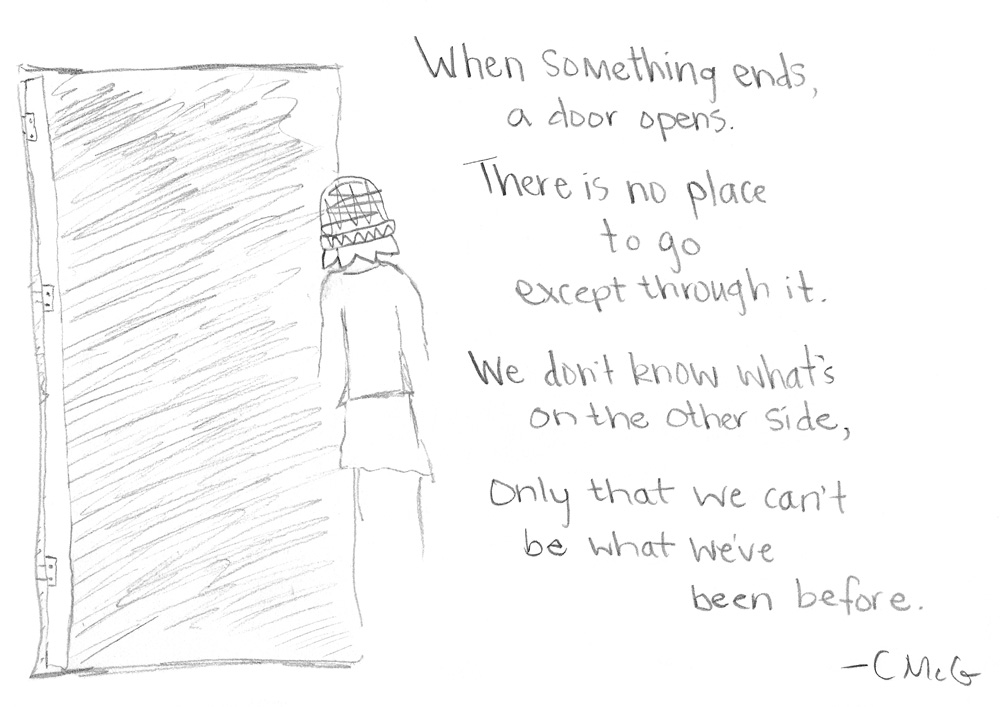 When something ends,
a door opens.
There is no place
to go
except through it.
We don't know what's
on the other side,
Only that we can't
be what we've
been before.
–C McG